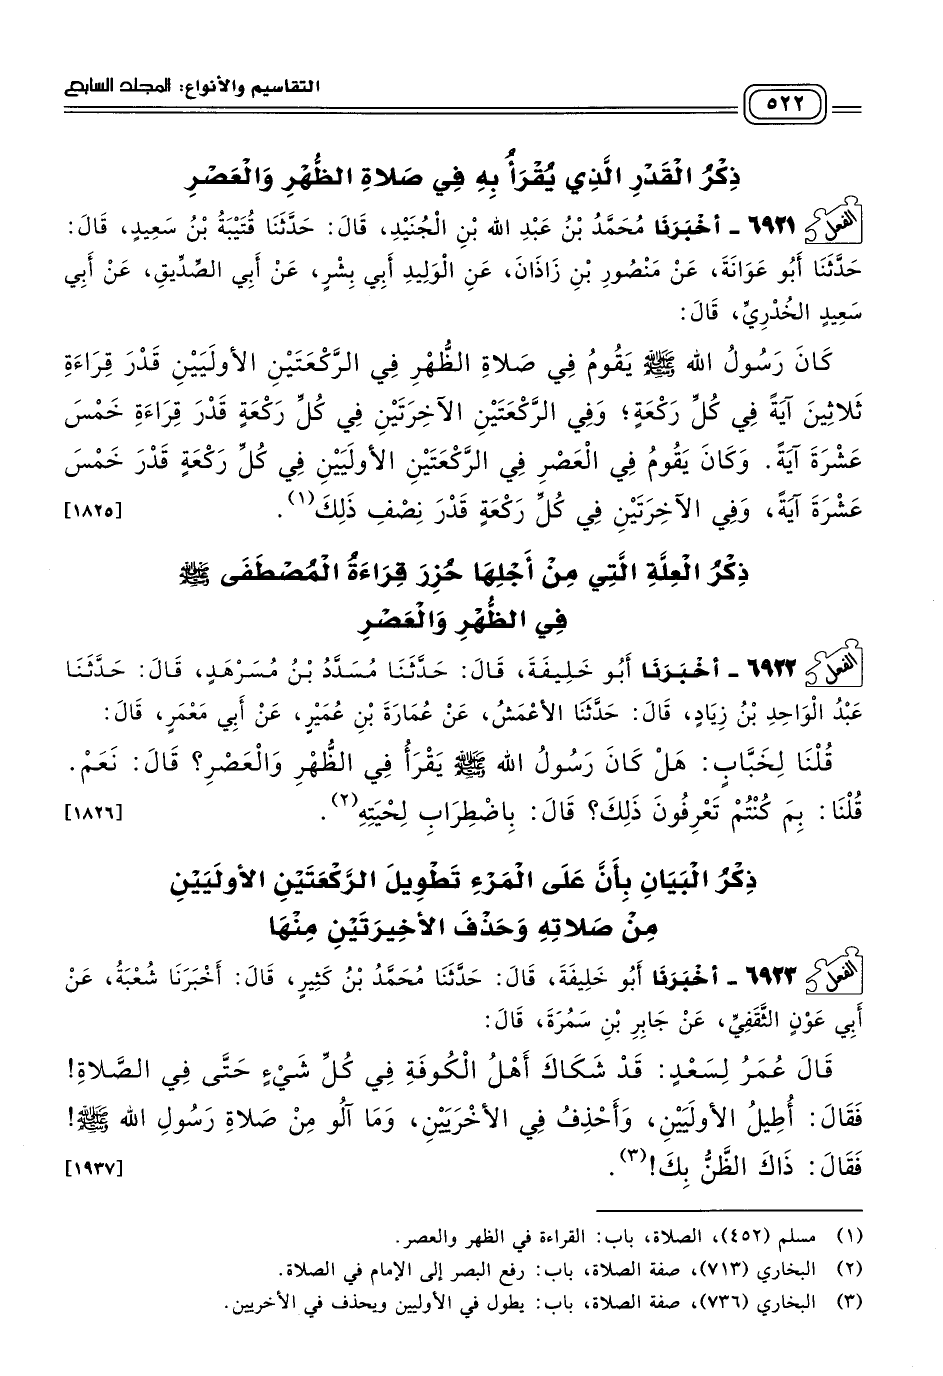 التقاسيم والأنواع: المجلد السابع
٥٢٢
ذِكْرُ الْقَدْرِ الَّذِي يُقْرَأُ بِهِ فِي صَلاةِ الظُّهْرِ وَالْعَصْرِ
الفعل ٦٩٢١ - أَخْبَرَنَا مُحَمَّدُ بْنُ عَبْدِ الله بْنِ الْجُنَيْدِ، قَالَ: حَدَّثَنَا قُتَيْبَةُ بْنُ سَعِيدٍ، قَالَ:
حَدَّثَنَا أَبُو عَوَانَةَ، عَنْ مَنْصُورِ بْنِ زَاذَانَ، عَنِ الْوَلِيدِ أَبِي بِشْرٍ، عَنْ أَبِي الصِّدِّيقِ، عَنْ أَبِي
سَعِيدٍ الْخُدْرِيِّ، قَالَ:
كَانَ رَسُولُ الله ﷺ يَقُومُ فِي صَلاةِ الظُّهْرِ فِي الرَّكْعَتَيْنِ الأُولَيَيْنِ قَدْرَ قِرَاءَةِ
ثَلاثِينَ آيَةً فِي كُلِّ رَكْعَةٍ؛ وَفِي الرَّكْعَتَيْنِ الآخِرَتَيْنِ فِي كُلِّ رَكْعَةٍ قَدْرَ قِرَاءَةِ خَمْسَ
عَشْرَةَ آيَةً. وَكَانَ يَقُومُ فِي الْعَصْرِ فِي الرَّكْعَتَيْنِ الأُولَيَيْنِ فِي كُلِّ رَكْعَةٍ قَدْرَ خَمْسَ
عَشْرَةَ آيَةً، وَفِي الآخِرَتَيْنِ فِي كُلِّ رَكْعَةٍ قَدْرَ نِصْفِ ذَلِكَ(١). [١٨٢٥]
ذِكْرُ الْعِلَّةِ الَّتِي مِنْ أَجْلِهَا حُزِرَ قِرَاءَةُ الْمُصْطَفَى ﷺ
فِي الظُّهْرِ وَالْعَصْرِ
الفعل ٦٩٢٢ - أَخْبَرَنَا أَبُو خَلِيفَةَ، قَالَ: حَدَّثَنَا مُسَدَّدُ بْنُ مُسَرْهَدٍ، قَالَ: حَدَّثَنَا
عَبْدُ الْوَاحِدِ بْنُ زِيَادٍ، قَالَ: حَدَّثَنَا الأَعْمَشُ، عَنْ عُمَارَةَ بْنِ عُمَيْرٍ، عَنْ أَبِي مَعْمَرٍ، قَالَ:
قُلْنَا لِخَبَّابٍ: هَلْ كَانَ رَسُولُ الله ﷺ يَقْرَأُ فِي الظُّهْرِ وَالْعَصْرِ؟ قَالَ: نَعَمْ.
قُلْنَا: بِمَ كُنْتُمْ تَعْرِفُونَ ذَلِكَ؟ قَالَ: بِاضْطِرَابِ لِحْيَتِهِ(٢). [١٨٢٦]
ذِكْرُ الْبَيَانِ بِأَنَّ عَلَى الْمَرْءِ تَطْوِيلَ الرَّكْعَتَيْنِ الأُولَيَيْنِ
مِنْ صَلاتِهِ وَحَذْفَ الأَخِيرَتَيْنِ مِنْهَا
الفعل ٦٩٢٣ - أَخْبَرَنَا أَبُو خَلِيفَةَ، قَالَ: حَدَّثَنَا مُحَمَّدُ بْنُ كَثِيرٍ، قَالَ: أَخْبَرَنَا شُعْبَةُ، عَنْ
أَبِي عَوْنٍ الثَّقَفِيِّ، عَنْ جَابِرِ بْنِ سَمُرَةَ، قَالَ:
قَالَ عُمَرُ لِسَعْدٍ: قَدْ شَكَاكَ أَهْلُ الْكُوفَةِ فِي كُلِّ شَيْءٍ حَتَّى فِي الصَّلاةِ!
فَقَالَ: أُطِيلُ الأُولَيَيْنِ، وَأَحْذِفُ فِي الأُخْرَيَيْنِ، وَمَا آلُو مِنْ صَلاةِ رَسُولِ الله ﷺ!
فَقَالَ: ذَاكَ الظَّنُّ بِكَ!(٣). [١٩٣٧]
(١) مسلم (٤٥٢)، الصلاة، باب: القراءة في الظهر والعصر.
(٢) البخاري (٧١٣)، صفة الصلاة، باب: رفع البصر إلى الإمام في الصلاة.
(٣) البخاري (٧٣٦)، صفة الصلاة، باب: يطول في الأوليين ويحذف في الأخريين.